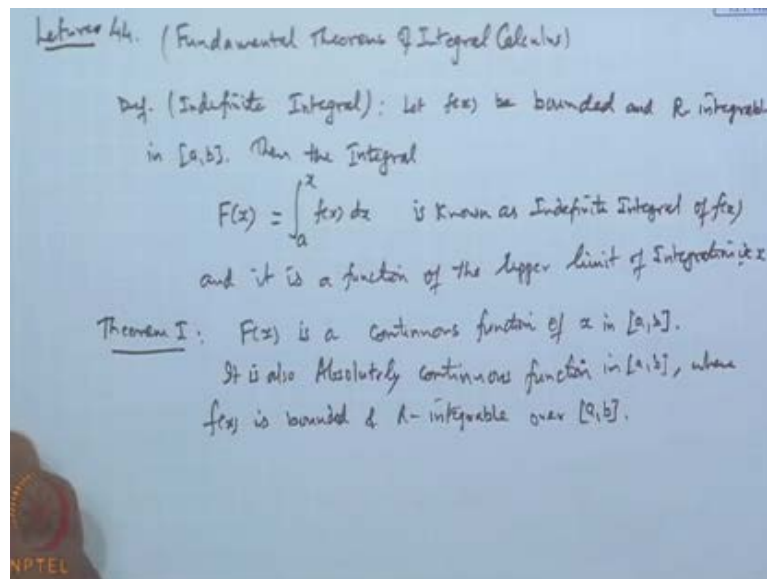 Lecture 44. (Fundamental Theorems of Integral Calculus)
Def. (Indefinite Integral): Let f(x) be bounded and R integrable
in [a,b]. Then the Integral
F(x) = ∫_a^x f(x) dx is known as Indefinite Integral of f(x)
and it is a function of the upper limit of Integration i.e. x
Theorem I: F(x) is a continuous function of x in [a,b].
It is also Absolutely continuous function in [a,b], where
f(x) is bounded & R-integrable over [a,b].
NPTEL